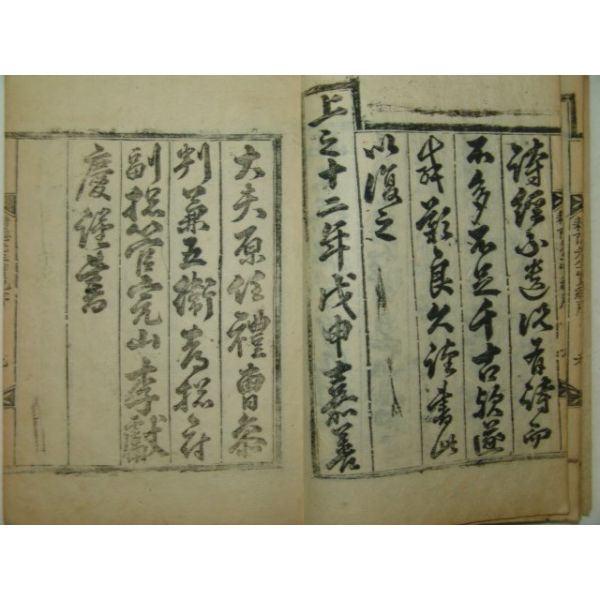 詩經不遺以有詩而
不多不足千古
歎良久謹書此
以復之
上之十二年戊申嘉善
大夫原任禮曹參
判兼五衛都摠府
副摠管完山李獻
慶謹書